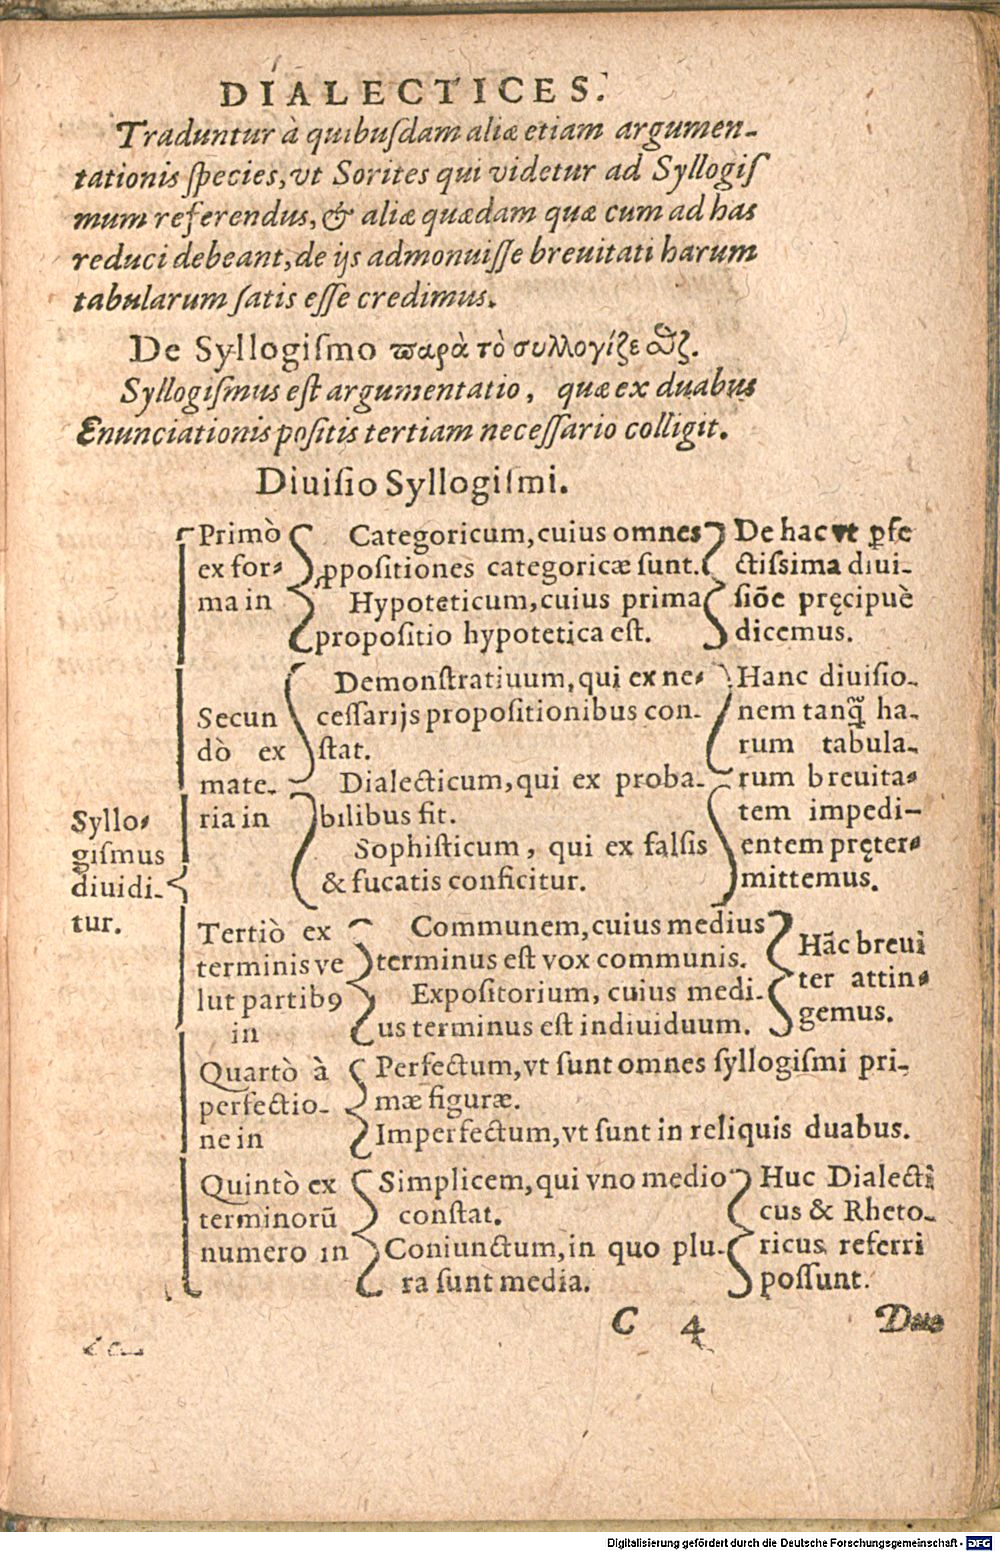 DIALECTICES.
Traduntur à quibuſdam aliæ etiam argumen-
tationis ſpecies, vt Sorites qui videtur ad Syllogiſ
mum referendus, & aliæ quædam quæ cum ad has
reduci debeant, de ijs admonuiſſe breuitati harum
tabularum ſatis eſſe credimus.
De Syllogiſmo παρὰ τὸ συλλογίζεσθαι.
Syllogiſmus eſt argumentatio, quæ ex duabus
Enunciationis poſitis tertiam neceſſario colligit.
Diuiſio Syllogiſmi.
Syllo-
giſmus
diuidi-
tur.
Primò
ex for-
ma in
Categoricum, cuius omnes
ꝓpoſitiones categoricæ ſunt.
Hypoteticum, cuius prima
propoſitio hypotetica eſt.
De hac vt ꝑfe
ctiſsima diui-
ſiõe pręcipuè
dicemus.
Secun
dò ex
mate-
ria in
Demonſtratiuum, qui ex ne-
ceſſarijs propoſitionibus con-
ſtat.
Dialecticum, qui ex proba-
bilibus fit.
Sophiſticum, qui ex falſis
& fucatis conficitur.
Hanc diuiſio-
nem tanq̃ ha-
rum tabula-
rum breuita-
tem impedi-
entem pręter-
mittemus.
Tertiò ex
terminis ve
lut partibꝰ
in
Communem, cuius medius
terminus eſt vox communis.
Expoſitorium, cuius medi-
us terminus eſt indiuiduum.
Hãc breui
ter attin-
gemus.
Quartò à
perfectio-
ne in
Perfectum, vt ſunt omnes ſyllogiſmi pri-
mæ figuræ.
Imperfectum, vt ſunt in reliquis duabus.
Quintò ex
terminorũ
numero in
Simplicem, qui vno medio
conſtat.
Coniunctum, in quo plu-
ra ſunt media.
Huc Dialecti
cus & Rheto-
ricus referri
poſſunt.
C 4
Duo
Digitalisierung gefördert durch die Deutsche Forschungsgemeinschaft - DFG